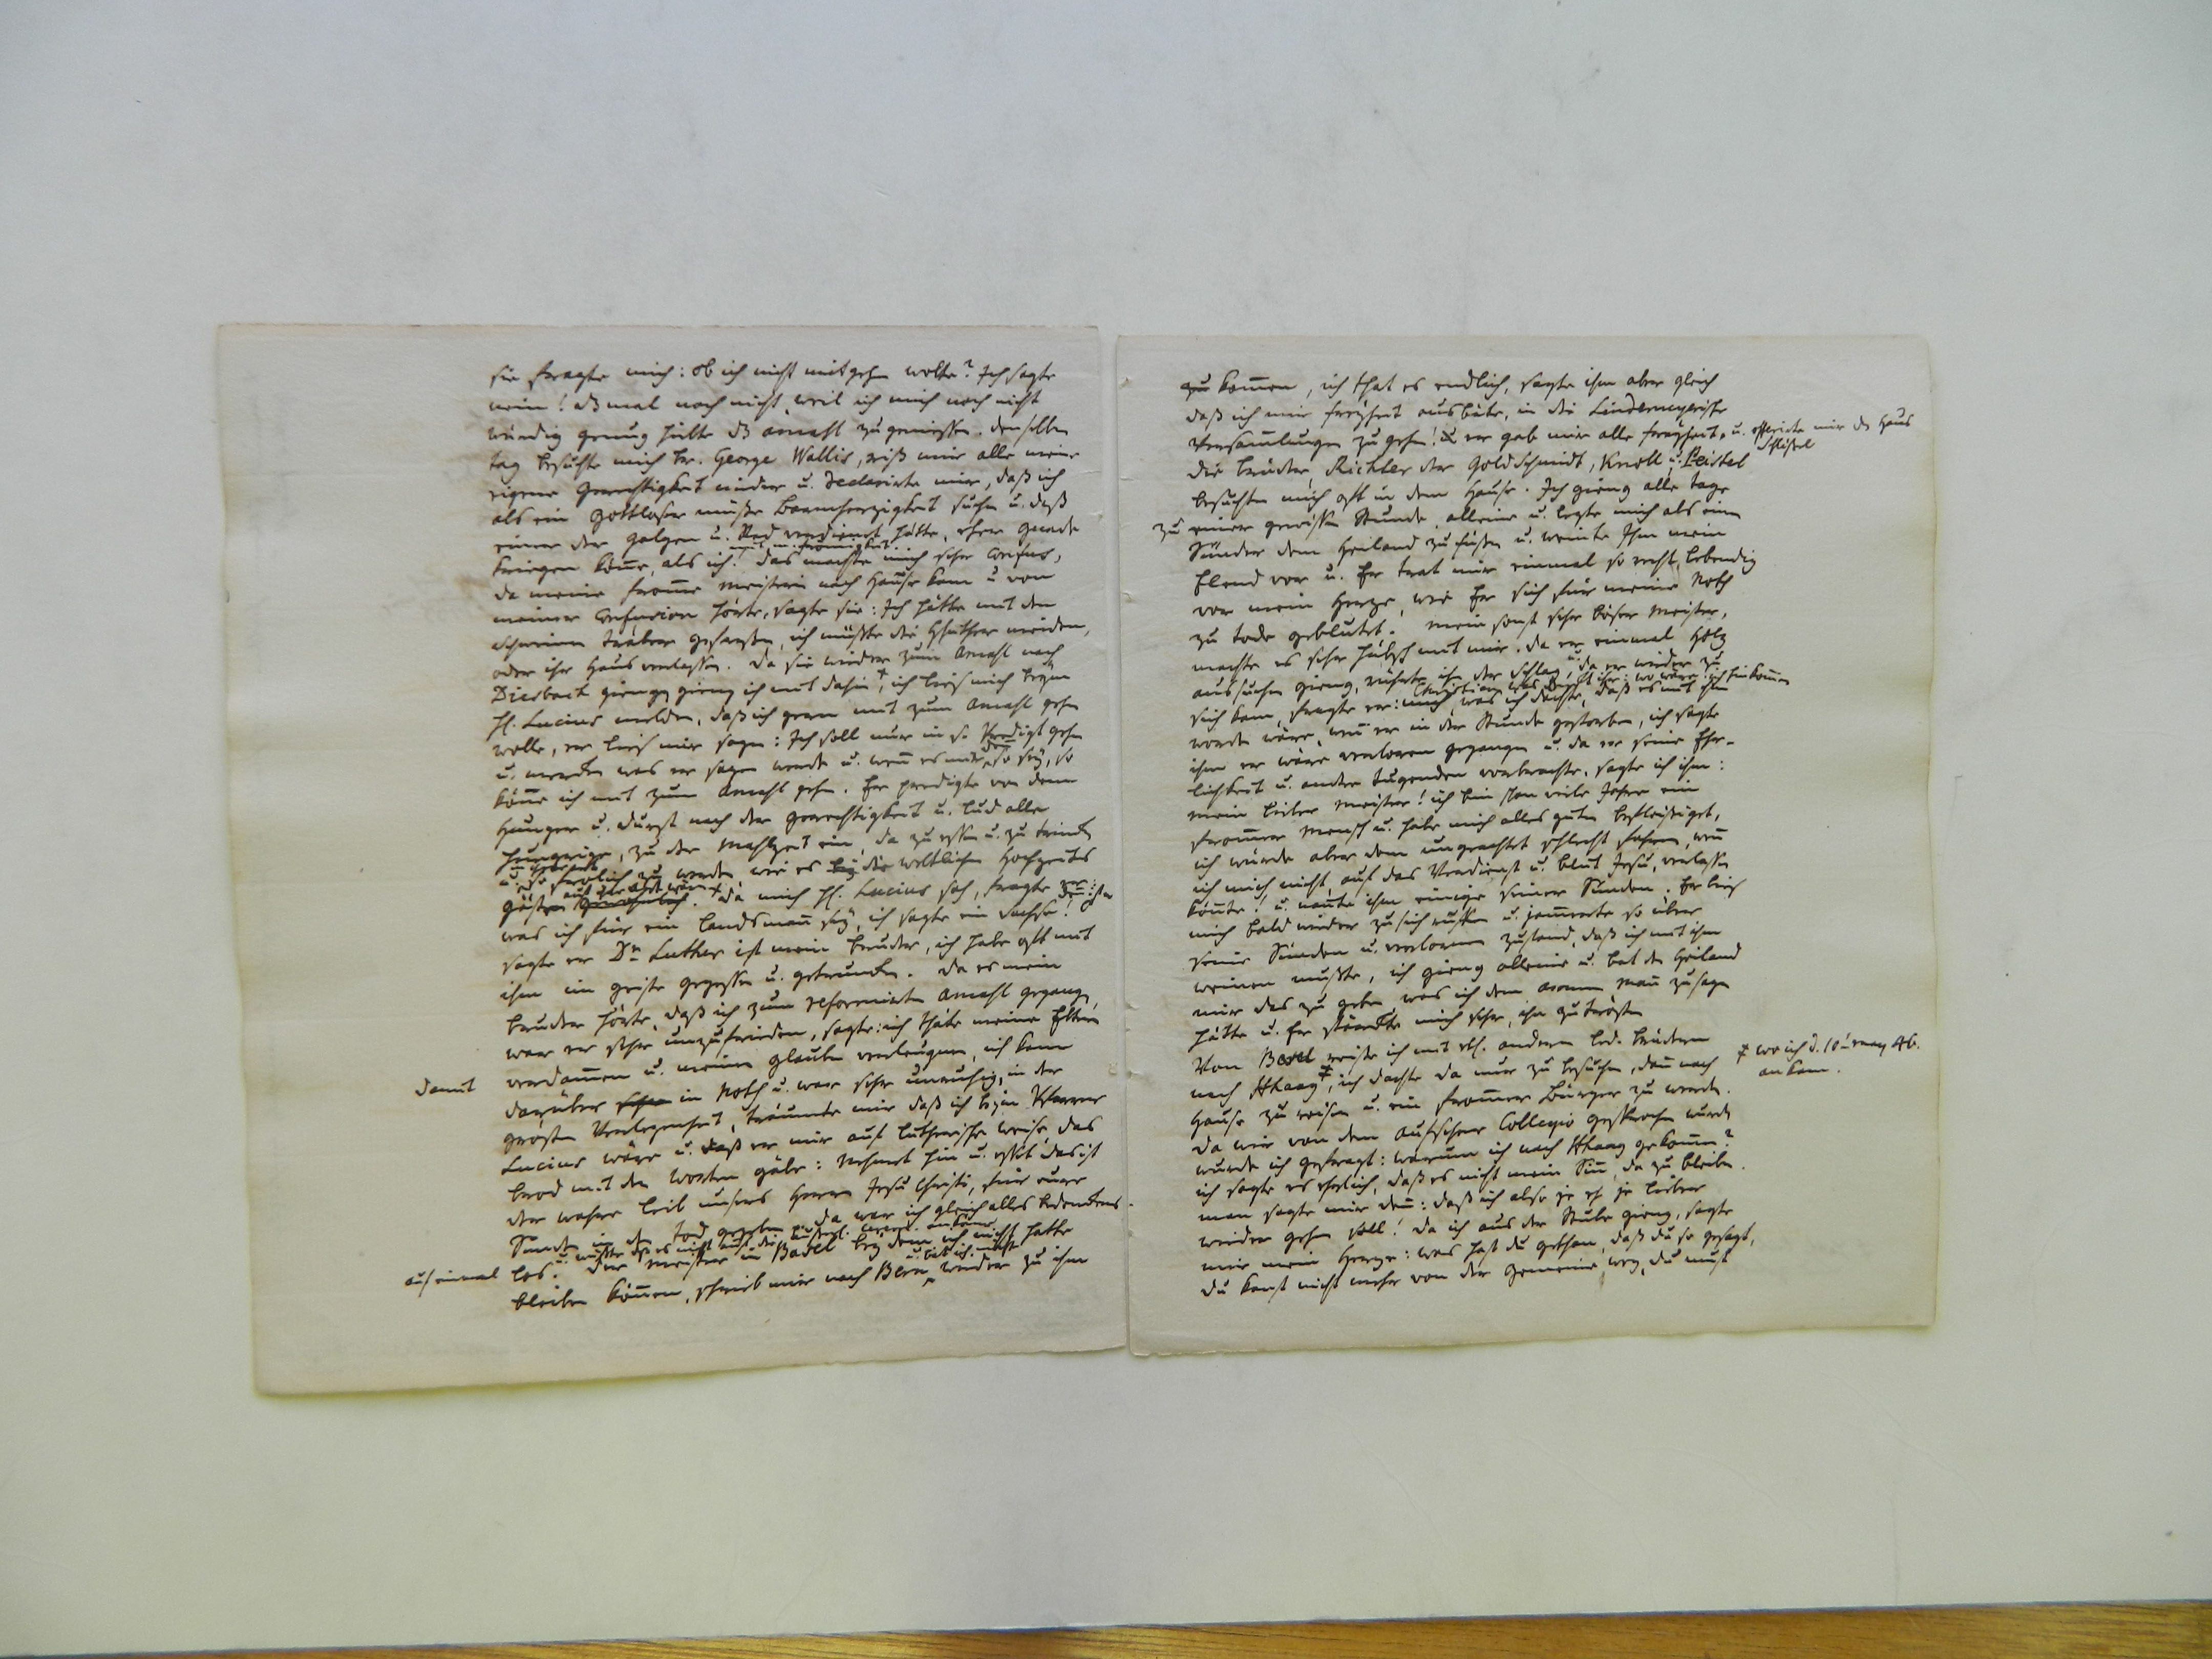 sie fragte mich: ob ich nicht mitgehn wolte? Ich sagte
nein! dßmal noch nicht, weil ich mich noch nicht
würdig genug hielte ds Amahl zu geniessen. denselben
tag besuchte mich br. George Wallis, riß mir alle meine
eigene Gerechtigkeit nieder u. declarirte mir, daß ich
als ein Gottloser müße Barmherzigkeit suchen u. daß
einer der Galgen u. Rad verdienet hätte, eher Gnade
kriegen könne, als ich mit m. Frömigkeit. das machte mich sehr confus,
da meine fromme Meisterin nach Hause kam u von
meiner Confusion hörte, sagte sie: Ich hätte mit den
Schweinen träber gefressen, ich müßte die Hhuther meiden,
oder ihr Haus verlassen. da sie wieder zum Amahl nach
Diesbach gieng, gieng ich mit dahin, ich ließ mich beym
H. Lucius melden, daß ich gern mit zum Amahl gehn
wolle, er ließ mir sagen: Ich soll nur in se Predigt gehn
u. merken was er sagen werde u. wenn es mir denn so sey, so
könne ich mit zum Amahl gehn. Er predigte von dem
Hunger u. durst nach der Gerechtigkeit u. lud alle
Hungrige, zu der Mahlzeit ein, da zu essen u. zu trinken
u. so frölich zu werden, wie es die weltlichen Hochzeits
Gäste auf ihre Art wären. da mich H. Lucius sah, fragte er:
was ich für ein Landsmann sey, ich sagte ein Sachse!
sagte er Dr. Luther ist mein Bruder, ich habe oft mit
ihm im Geiste gegessen u. getrunken. da es mein
Bruder hörte, daß ich zum reformirten Amahl gegangen,
war er sehr unzufrieden, sagte: ich thäte meine Eltern
damit verdammen u. meinen Glauben verleugnen, ich kam
darüber in Noth u. war sehr unruhig, in der
größten Verlegenheit, träumte mir daß ich beym Pfarrer
Lucius wäre u. daß er mir auf lutherische weise das
brod mit den Worten gäbe: Nehmet hin u. esset das ist
der wahre Leib unsers Herrn Jesu Christi, für eure
Sünden in den Tod gegeben. da war ich gleich alles bedenkens
u. wußte daß es nicht auf die äusserl. Cerem. ankäme
auf einmal los. der Meister in Basel bey dem ich nicht hatte
bleiben können, schrieb mir nach Bern u. bat ich möchte wieder zu ihm
zu kommen, ich that es endlich, sagte ihm aber gleich
daß ich mir freyheit ausbäte, in die Lindemeyerische
Versammlungen zu gehn! er gab mir alle freyheit, u. offerirte mir den Haus
schlüßel
die Brüder, Richter der Goldschmidt, Knoll u. Leistel
besuchten mich oft in dem Hause. Ich gieng alle tage
zu einer gewissen Stunde, alleine u. legte mich als ein
Sünder dem Heiland zu füßen u. weinte Ihm mein
Elend vor u. Er trat mir einmal so recht lebendig
vor mein Herze, wie Er sich für meine Noth
zu tode geblutet. Mein sonst sehr böser Meister,
machte es sehr hübsch mit mir. da er einmal Holz
aussuchen gieng, rührte ihn der Schlag, u. da er wieder zu
sich kam, fragte er: Christian was denckt ihr: wo wäre ich hinkommen
was ich dächte, daß es mit ihm
worden wäre, wenn er in der Stunde gestorben, ich sagte
ihm er wäre verloren gegangen u. da er seine Ehr-
lichkeit u. andere tugenden vorbrachte, sagte ich ihm:
mein lieber Meister! ich bin schon viele Jahre ein
frommer Mensch u. habe mich alles guten befleissiget,
ich würde aber dem ungeachtet schlecht fahren, wenn
ich mich nicht, auf das Verdienst u. Blut Jesu, verlassen
könnte! u. nante ihm einige seiner Sünden. Er ließ
mich bald wieder zu sich ruffen u. jammerte so über
seine Sünden u. verlornen zustand, daß ich mit ihm
weinen mußte, ich gieng alleine u. bat den Heiland
mir das zu geben was ich dem armen Mann zu sagen
hätte u. Er stärckte mich sehr, ihn zu trösten
Von Basel reiste ich mit etl. andern led. Brüdern
nach HHaag, ich dachte da nur zu besuchen, dann nach
ǂ wo ich d. 10ten may 46.
ankam.
Hause zu reisen u. ein frommer Bürger zu werden.
da wir von dem Aufseher Collegio gesprochen wurden
wurde ich gefragt: warum ich nach HHaag gekommen?
ich sagte es ehrlich, daß es nicht mein Sinn, da zu bleiben.
man sagte mir denn: daß ich also je eh je lieber
wieder gehn soll! da ich aus der Stube gieng, sagte
mir mein Herze: was hast du gethan, daß du so gesagt,
du kanst nicht mehr von der Gemeine weg, du must